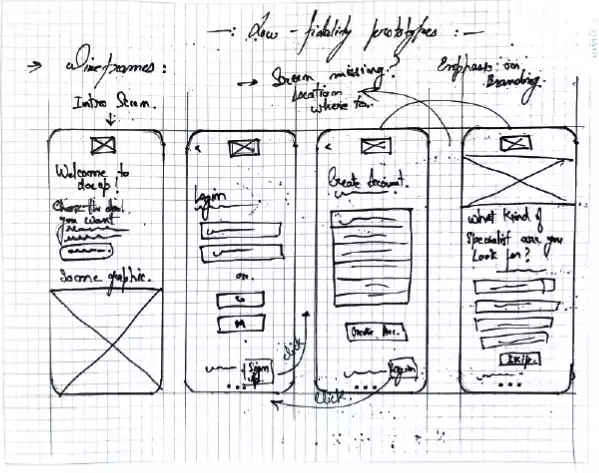 —: Low-fidelity prototypes :—
→ Wireframes:
Intro Screen.
→ Screen missing?
Location
where to.
Emphasis on
Branding.
Welcome to
docap!
Choose the
you want
Some graphic.
<
Login
or.
Sign
up.
click
<
Create Account.
Create Acc.
Login
click.
What kind of
Specialist are you
Look for?
Skip.